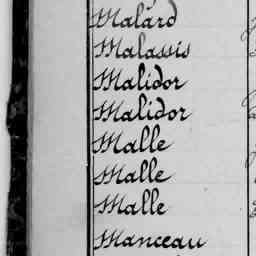 Malard
Malassis
Malidor
Malidor
Malle
Malle
Malle
Manceau